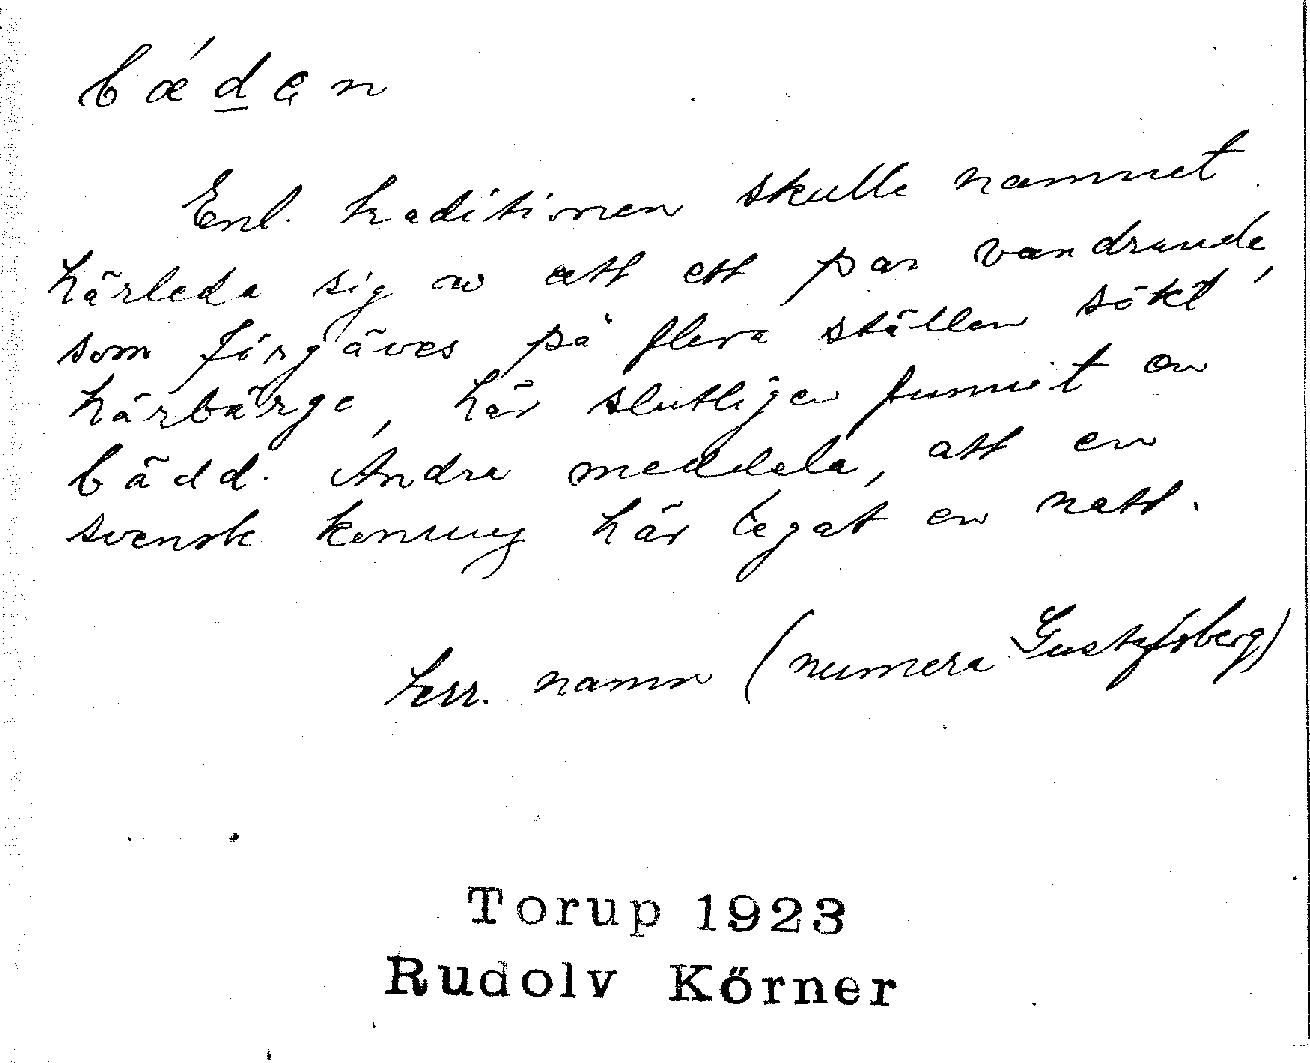 bǽdan
Enl. traditionen skulle namnet
härleda sig av att ett par vandrande,
som förgäves på flera ställen sökt
härbärge, här slutligen funnit en
bädd. Andra meddela, att en
svensk konung här legat en natt.
herr. namn (numera Gustafsberg)
Torup 1923
Rudolv Körner